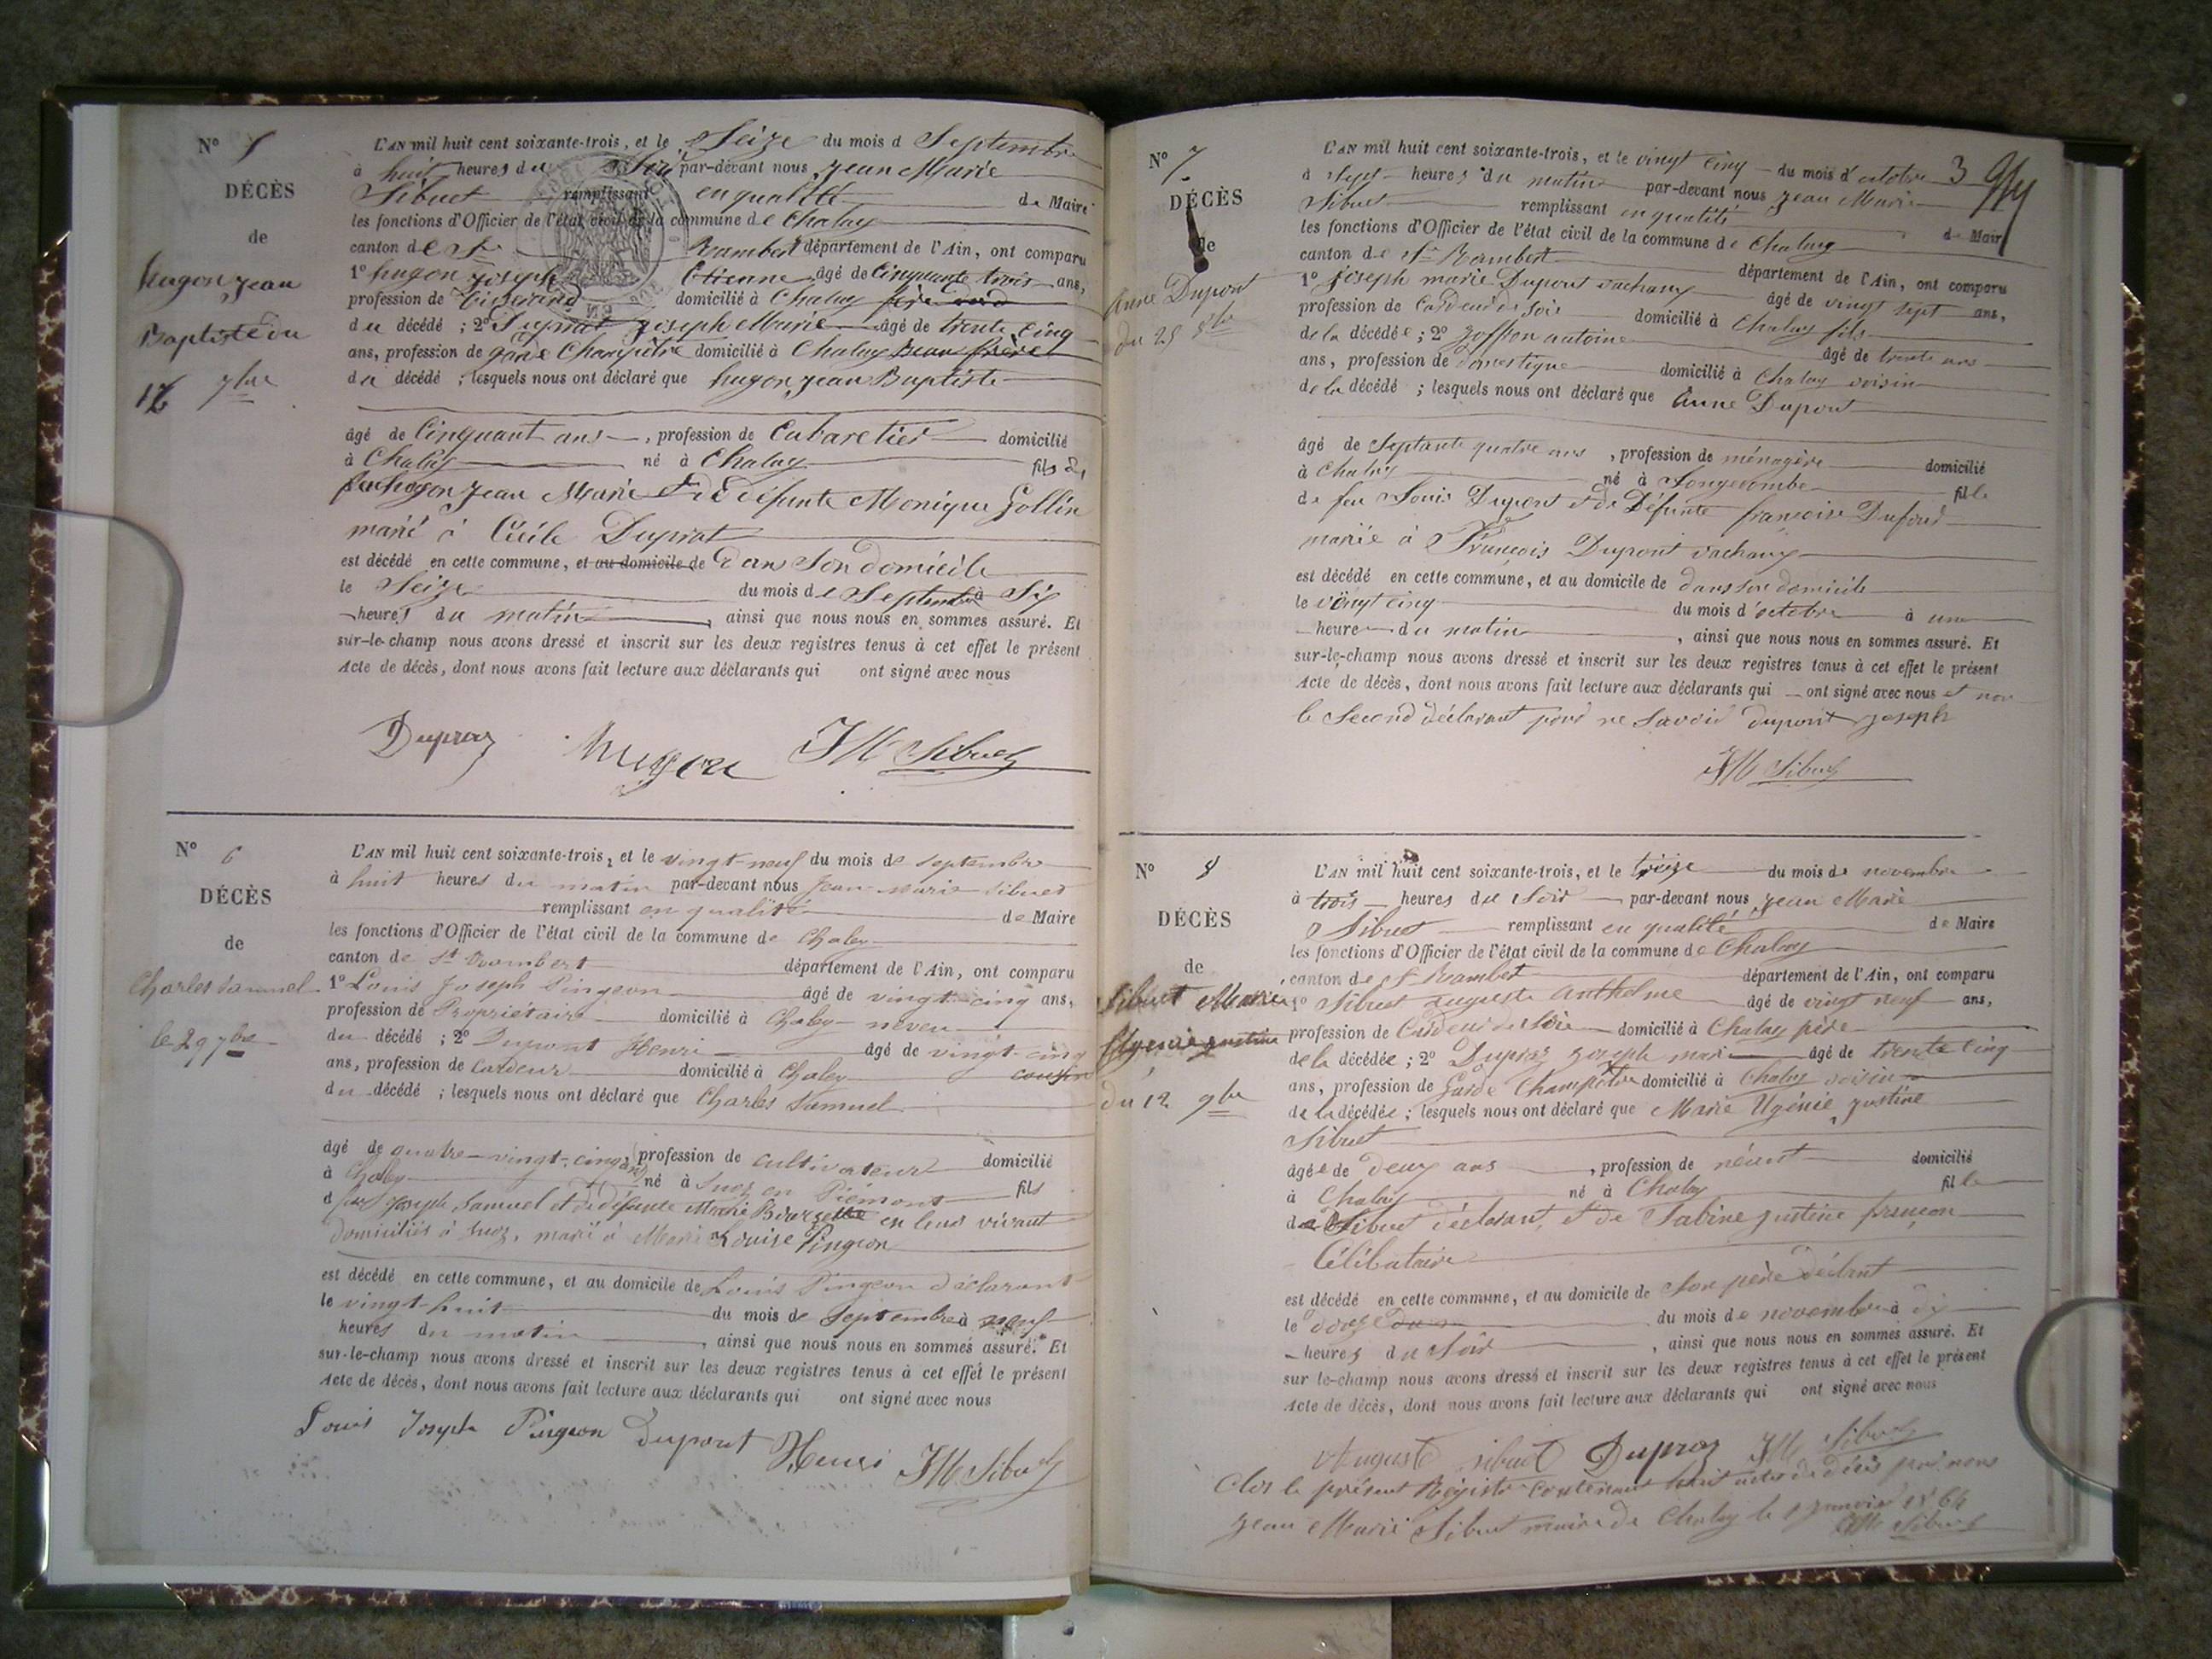 N° 5
DÉCÈS
de
hugon Jean
Baptiste du
16 7bre
L'AN mil huit cent soixante-trois, et le Seize du mois d Septembre
à huit heures du Soir par-devant nous Jean Marie
Sibuet remplissant en qualité de Maire
les fonctions d'Officier de l'état civil de la commune de Chaley
canton de St Rambert département de l'Ain, ont comparu
1° hugon Joseph Etienne âgé de Cinquante trois ans,
profession de tisserand domicilié à Chaley
du décédé ; 2° Duprat Joseph Marie âgé de trente cinq
ans, profession de garde Champêtre domicilié à Chaley Beau frère
du décédé ; lesquels nous ont déclaré que hugon Jean Baptiste
âgé de Cinquant ans, profession de Cabaretier domicilié
à Chaley né à Chaley fils de
feu hugon Jean Marie et de défunte Monique Gollin
marié à Cécile Duprat
est décédé en cette commune, et au domicile de dans Son domicile
le Seize du mois de Septembre à Six
heures du matin, ainsi que nous nous en sommes assuré. Et
sur-le-champ nous avons dressé et inscrit sur les deux registres tenus à cet effet le présent
Acte de décès, dont nous avons fait lecture aux déclarants qui ont signé avec nous
Dupraz hugon JM Sibuet
N° 6
DÉCÈS
de
Charles Samuel
le 29 7bre
L'AN mil huit cent soixante-trois, et le vingt-neuf du mois de septembre
à huit heures du matin par-devant nous Jean-Marie Sibuet
remplissant en qualité de Maire
les fonctions d'Officier de l'état civil de la commune de Chaley
canton de St Rambert département de l'Ain, ont comparu
1° Louis Joseph Pingeon âgé de vingt-cinq ans,
profession de Propriétaire domicilié à Chaley neveu
du décédé ; 2° Dupont Henri âgé de vingt-cinq
ans, profession de cardeur domicilié à Chaley cousin
du décédé ; lesquels nous ont déclaré que Charles Samuel
âgé de quatre-vingt-cinq ans, profession de cultivateur domicilié
à Chaley né à Suez en Piémont fils
d feu Joseph Samuel et de défunte Marie en leur vivant
domiciliés à Suez, marié à Marie Louise Pingeon
est décédé en cette commune, et au domicile de Louis Pingeon déclarant
le vingt-huit du mois de Septembre à neuf
heures du matin, ainsi que nous nous en sommes assuré. Et
sur-le-champ nous avons dressé et inscrit sur les deux registres tenus à cet effet le présent
Acte de décès, dont nous avons fait lecture aux déclarants qui ont signé avec nous
Louis Joseph Pingeon Dupont Henri JM Sibuet
3
N° 7
DÉCÈS
de
Anne Dupont
du 25 8bre
L'AN mil huit cent soixante-trois, et le vingt cinq du mois d'octobre
à Sept heures du matin par-devant nous Jean Marie
Sibuet remplissant en qualité de Maire
les fonctions d'Officier de l'état civil de la commune de Chaley
canton de St Rambert département de l'Ain, ont comparu
1° Joseph marie Dupont vachoux âgé de vingt sept ans,
profession de Cardeur de Soie domicilié à Chaley fils
de la décédée ; 2° Joffron antoine âgé de trente ans
ans, profession de domestique domicilié à Chaley voisin
de la décédé ; lesquels nous ont déclaré que Anne Dupont
âgé de Septante quatre ans, profession de ménagère domicilié
à Chaley né à Longecombe fille
de feu Louis Dupont et de Défunte françoise Dufour
mariée à François Dupont vachoux
est décédé en cette commune, et au domicile de dans son domicile
le vingt cinq du mois d'octobre à une
heure du matin, ainsi que nous nous en sommes assuré. Et
sur-le-champ nous avons dressé et inscrit sur les deux registres tenus à cet effet le présent
Acte de décès, dont nous avons fait lecture aux déclarants qui ont signé avec nous et non
le Second déclarant pour ne Savoir dupont joseph
JM Sibuet
N° 8
DÉCÈS
de
Sibuet Marie
Ugenie Justine
du 12 9bre
L'AN mil huit cent soixante-trois, et le treize du mois de novembre
à trois heures du Soir par-devant nous Jean Marie
Sibuet remplissant en qualité de Maire
les fonctions d'Officier de l'état civil de la commune de Chaley
canton de St Rambert département de l'Ain, ont comparu
1° Sibuet auguste Anthelme âgé de vingt neuf ans,
profession de Cardeur de Soie domicilié à Chaley père
de la décédée ; 2° Dupraz Joseph marie âgé de trente cinq
ans, profession de Garde Champêtre domicilié à Chaley voisin
de la décédée ; lesquels nous ont déclaré que Marie Ugénie Justine
Sibuet
âgée de deux ans, profession de néant domicilié
à Chaley né à Chaley fille
de Sibuet déclarant et de Sabine justine françon
Célibataire
est décédé en cette commune, et au domicile de Son père déclant
le douze du mois de novembre à dix
heures du Soir, ainsi que nous nous en sommes assuré. Et
sur le-champ nous avons dressé et inscrit sur les deux registres tenus à cet effet le présent
Acte de décès, dont nous avons fait lecture aux déclarants qui ont signé avec nous
Auguste sibuet Dupraz JM Sibuet
Clos le présent Régistre Contenant huit actes de décès par nous
Jean Marie Sibuet maire de Chaley le 1 janvier 1864
JM Sibuet